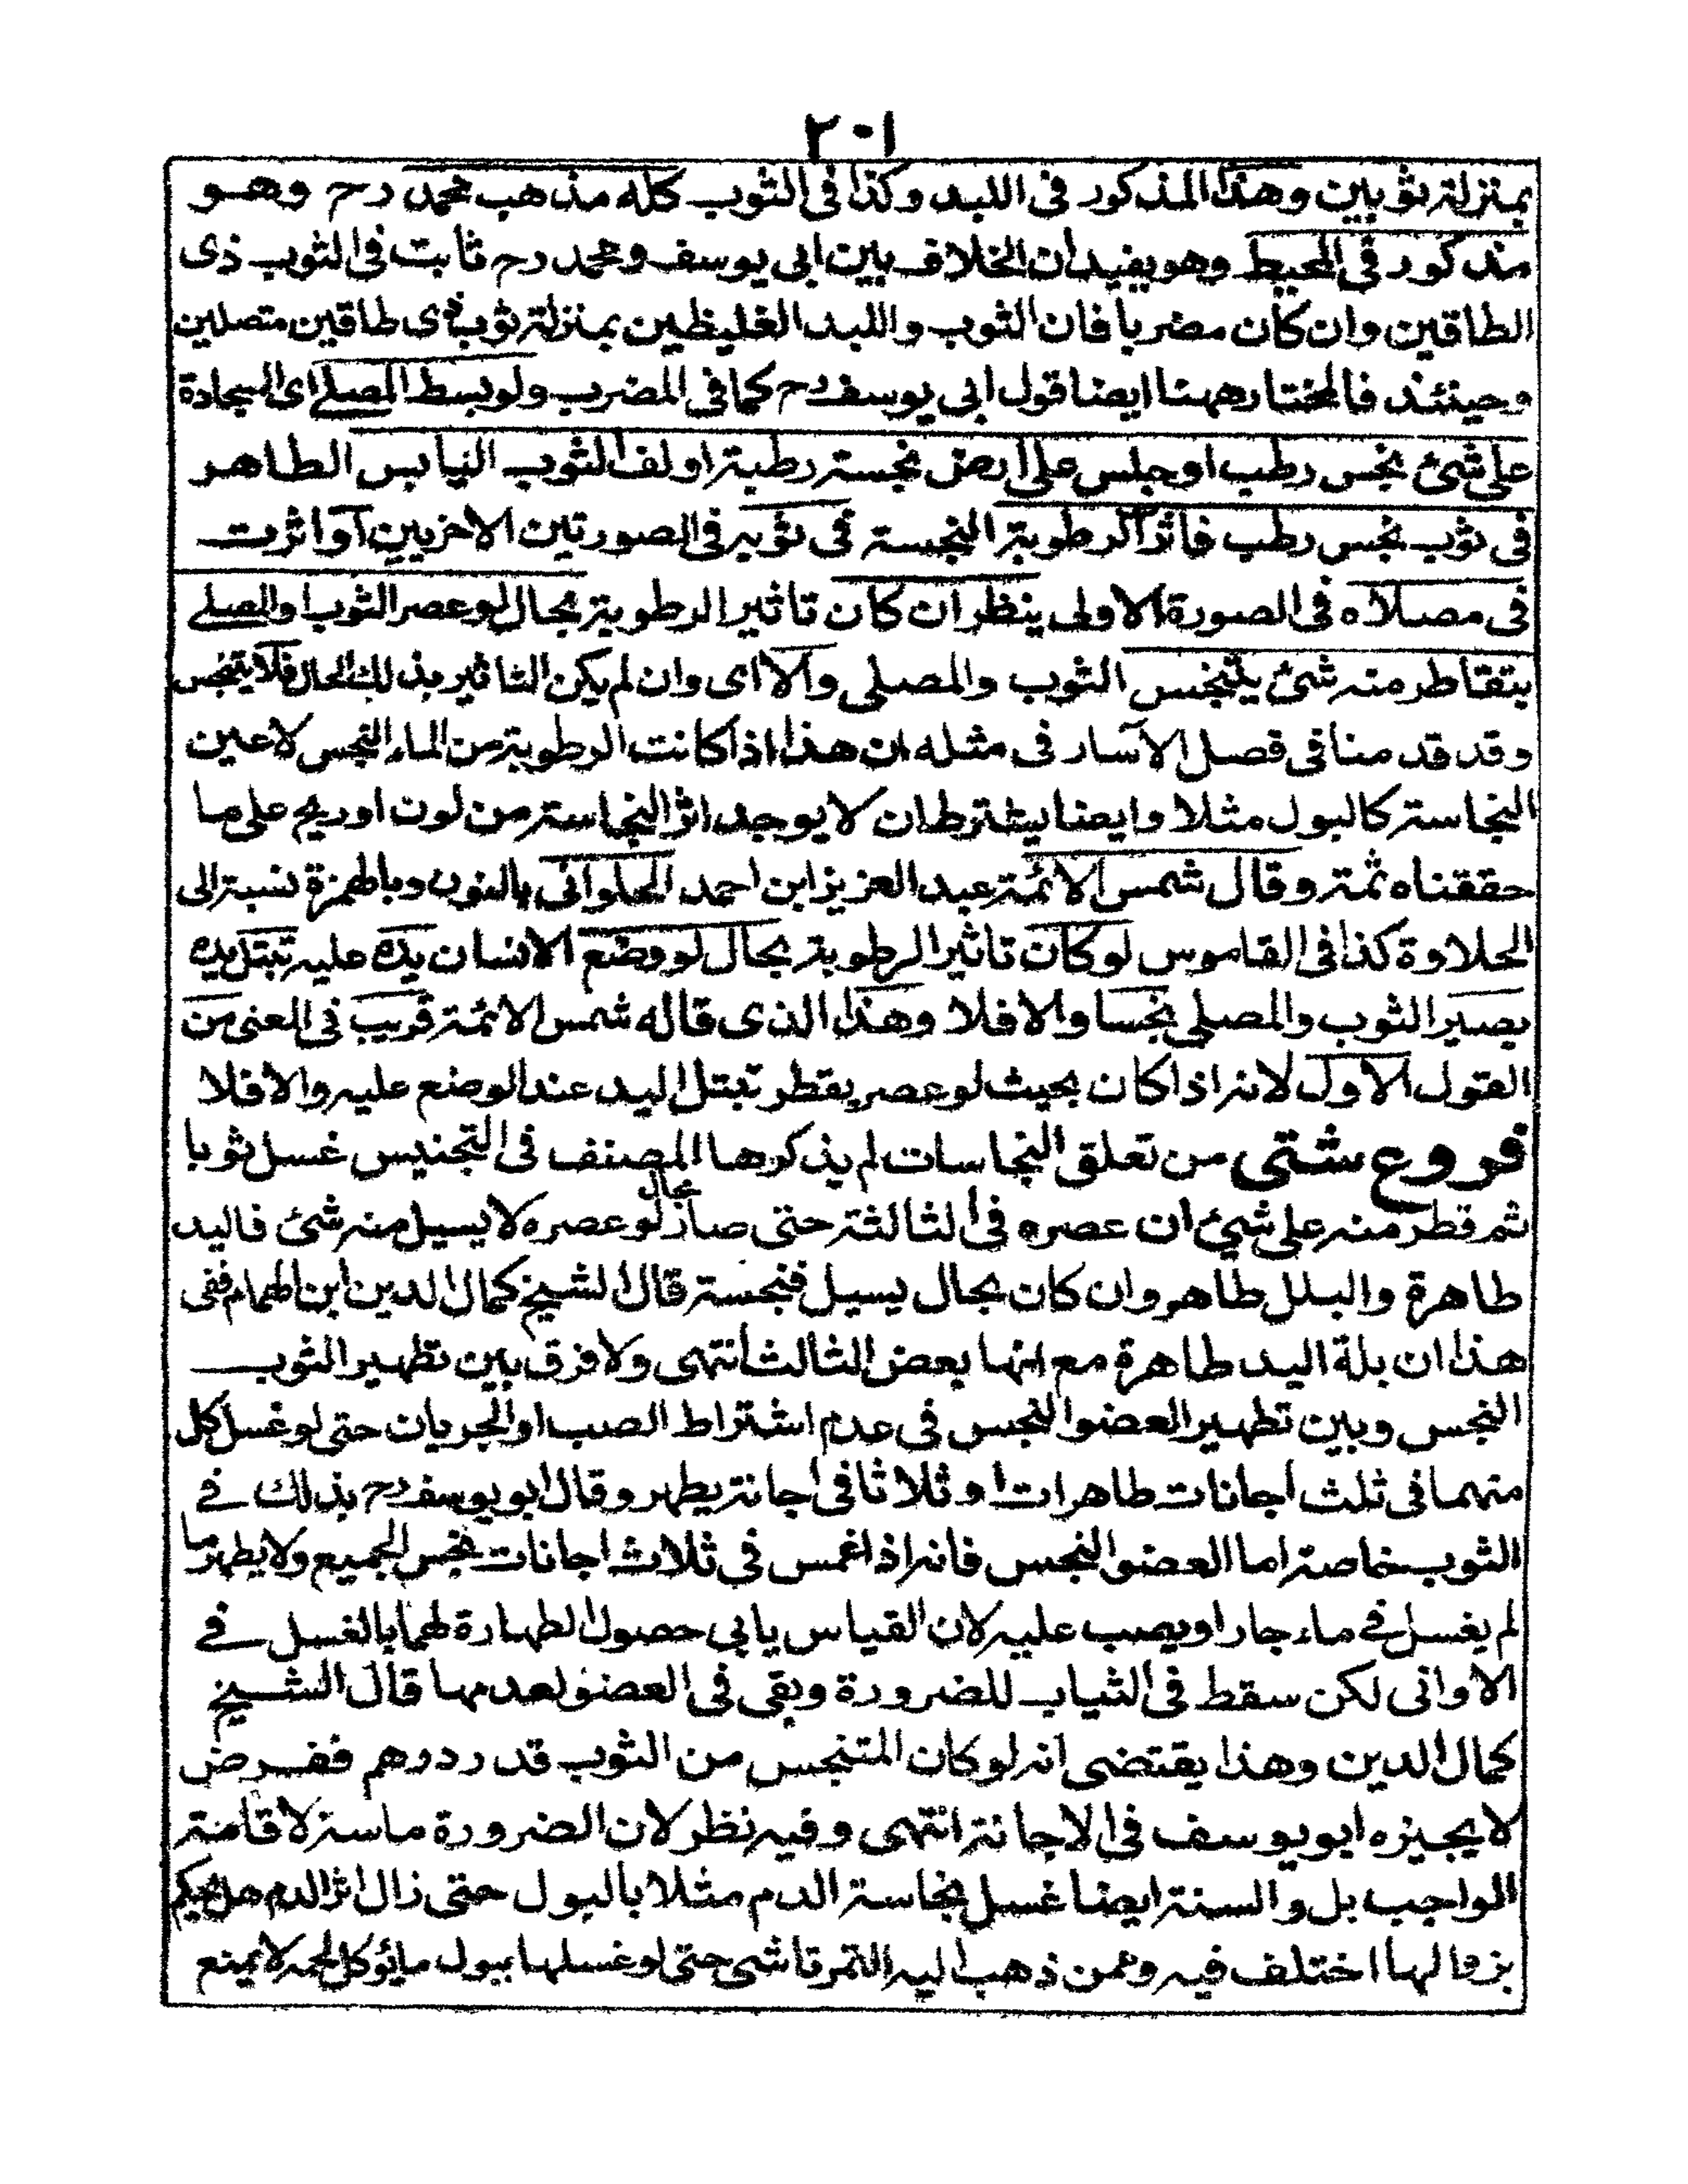 ٢٠١
بمنزلة ثوبين وهذا المذكور فى اللبد وكذا فى الثوب كله مذهب محمد رح وهو
مذكور فى المحيط وهو يفيد ان الخلاف بين ابى يوسف ومحمد رح ثابت فى الثوب ذى
الطاقين وان كان مضربا فان الثوب واللبد الغليظين بمنزلة ثوب ذى طاقين متصلين
وحينئذ فالمختار ههنا ايضا قول ابى يوسف رح كما فى المضرب ولو بسط المصلے اى السجادة
على شئ نجس رطب او جلس على ارض نجسة رطبة او لف الثوب اليابس الطاهر
فى ثوب نجس رطب فاثر الرطوبة النجسة فى ثوبه فى الصورتين الاخريين او اثرت
فى مصلاه فى الصورة الاولى ينظر ان كان تاثير الرطوبة بحال لو عصر الثوب او المصلے
يتقاطر منه شئ يتنجس الثوب والمصلى والا اى وان لم يكن التاثير بذلك الحال فلا يتنجس
وقد قدمنا فى فصل الآسار فى مثله ان هذا اذا كانت الرطوبة من الماء النجس لا عين
النجاسة كالبول مثلا وايضا يشترط ان لا يوجد اثر النجاسة من لون او ريح على ما
حققناه ثمة وقال شمس الائمة عبد العزيز ابن احمد الحلوانى بالنون وبالهمزة نسبة الى
الحلاوة كذا فى القاموس لو كان تاثير الرطوبة بحال لو وضع الانسان يده عليه تبتل يده
يصير الثوب والمصلى نجسا والا فلا وهذا الذى قاله شمس الائمة قريب فى المعنى من
القول الاول لانه اذا كان بحيث لو عصر يقطر تبتل اليد عند الوضع عليه والا فلا
فروع شتى من تعلق النجاسات لم يذكرها المصنف فى التجنيس غسل ثوبا
ثم قطر منه على شئ ان عصره فى الثالثة حتى صار بحال لو عصره لا يسيل منه شئ فاليد
طاهرة والبلل طاهر وان كان بحال يسيل فنجسة قال الشيخ كمال الدين ابن الهمام ففى
هذا ان بلة اليد طاهرة مع انها بعض الثالث انتهى ولا فرق بين تطهير الثوب
النجس وبين تطهير العضو النجس فى عدم اشتراط الصب او الجريان حتى لو غسل كل
منهما فى ثلث اجانات طاهرات او ثلاثا فى اجانة يطهر وقال ابو يوسف رح بذلك فے
الثوب خاصة اما العضو النجس فانه اذا غمس فى ثلاث اجانات نجس الجميع ولا يطهر ما
لم يغسل فے ماء جار او يصب عليه لان القياس يابى حصول الطهارة لهما بالغسل فے
الاوانى لكن سقط فى الثياب للضرورة وبقى فى العضو لعدمها قال الشيخ
كمال الدين وهذا يقتضى انه لو كان المتنجس من الثوب قدر درهم ففرض
لا يجيزه ابو يوسف فى الاجانة انتهى وفيه نظر لان الضرورة ماسة لاقامة
الواجب بل والسنة ايضا غسل نجاسة الدم مثلا بالبول حتى زال اثر الدم هل يحكم
بزوالها اختلف فيه وممن ذهب اليه التمرتاشى حتى لو غسلها ببول مايؤكل لحمه لا يمنع